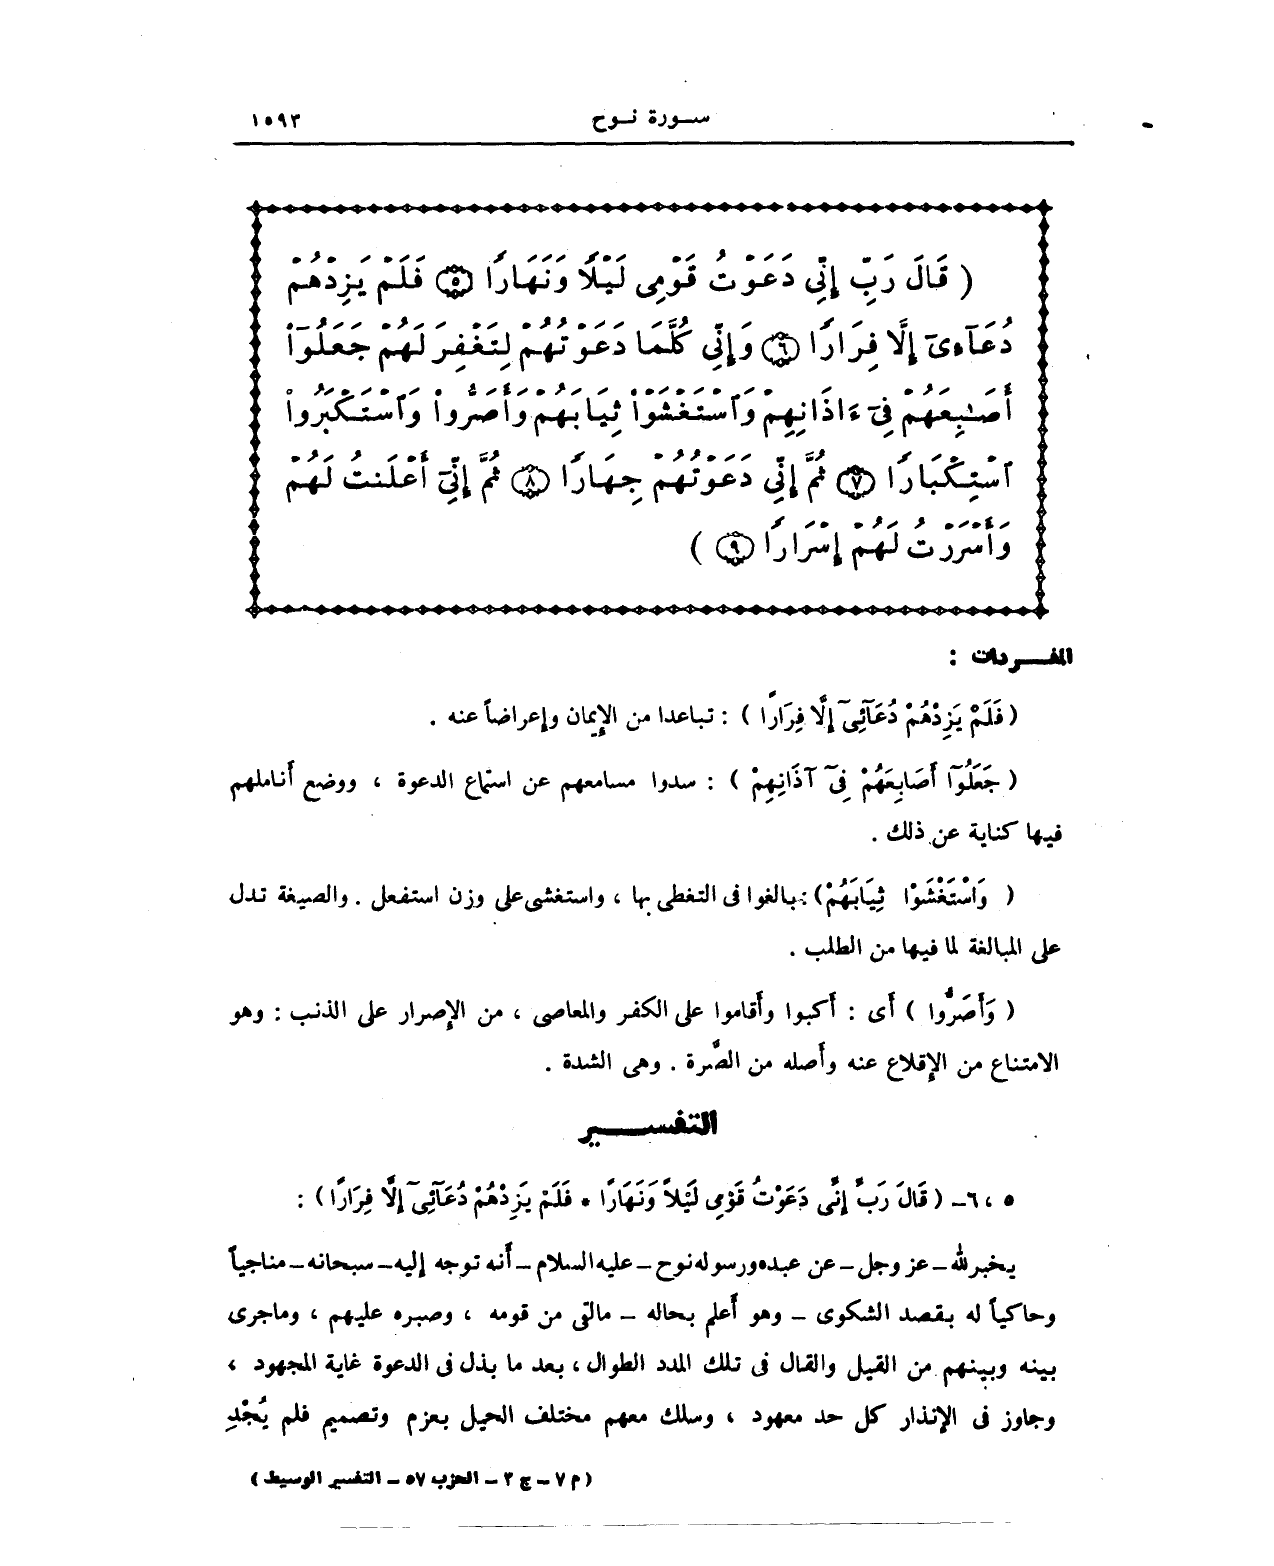 سورة نوح ١٥٩٣
( قَالَ رَبِّ إِنِّى دَعَوْتُ قَوْمِى لَيْلًا وَنَهَارًا ٥ فَلَمْ يَزِدْهُمْ
دُعَآءِىٓ إِلَّا فِرَارًا ٦ وَإِنِّى كُلَّمَا دَعَوْتُهُمْ لِتَغْفِرَ لَهُمْ جَعَلُوٓا۟
أَصَـٰبِعَهُمْ فِىٓ ءَاذَانِهِمْ وَٱسْتَغْشَوْا۟ ثِيَابَهُمْ وَأَصَرُّوا۟ وَٱسْتَكْبَرُوا۟
ٱسْتِكْبَارًا ٧ ثُمَّ إِنِّى دَعَوْتُهُمْ جِهَارًا ٨ ثُمَّ إِنِّىٓ أَعْلَنتُ لَهُمْ
وَأَسْرَرْتُ لَهُمْ إِسْرَارًا ٩ )
المفـــردات :
( فَلَمْ يَزِدْهُمْ دُعَآئِىٓ إِلَّا فِرَارًا ) : تباعدا من الإيمان وإعراضاً عنه .
( جَعَلُوٓا أَصَابِعَهُمْ فِىٓ آذَانِهِمْ ) : سدوا مسامعهم عن استماع الدعوة ، ووضع أناملهم
فيها كناية عن ذلك .
( وَاسْتَغْشَوْا ثِيَابَهُمْ ) : بالغوا فى التغطى بها ، واستغشى على وزن استفعل . والصيغة تدل
على المبالغة لما فيها من الطلب .
( وَأَصَرُّوا ) أى : أكبوا وأقاموا على الكفر والمعاصى ، من الإصرار على الذنب : وهو
الامتناع من الإقلاع عنه وأصله من الصَّرة . وهى الشدة .
التفســـــير
٥ ، ٦ــ ( قَالَ رَبِّ إِنِّى دَعَوْتُ قَوْمِى لَيْلاً وَنَهَارًا * فَلَمْ يَزِدْهُمْ دُعَآئِىٓ إِلَّا فِرَارًا ) :
يخبر الله ــ عز وجل ــ عن عبده ورسوله نوح ــ عليه السلام ــ أنه توجه إليه ــ سبحانه ــ مناجياً
وحاكياً له بقصد الشكوى ــ وهو أعلم بحاله ــ مالقى من قومه ، وصبره عليهم ، وماجرى
بينه وبينهم من القيل والقال فى تلك المدد الطوال ، بعد ما بذل فى الدعوة غاية المجهود ،
وجاوز فى الإنذار كل حد معهود ، وسلك معهم مختلف الحيل بعزم وتصميم فلم يُجْدِ
( م ٧ ــ ج ٣ ــ الحزب ٥٧ ــ التفسير الوسيط )